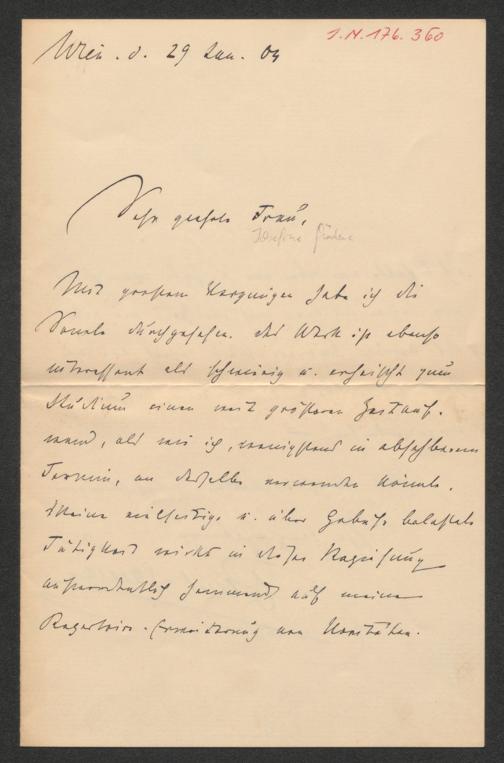 Wien. d. 29 Jan. 04
I.N. 176.360
Sehr geehrte Frau,
Josefine
Mit großem Vergnügen habe ich die
Sonate durchgesehen. Das Werk ist ebenso
interessant als schwierig u. erheischt zum
Studium einen weit größeren Zeitauf-
wand, als wie ich, wenigstens in absehbarem
Termin, an dasselbe verwenden könnte.
Meine vielseitige u. über Gebühr belastete
Tätigkeit wirkt in dieser Beziehung
außerordentlich hemmend auf meine
Repertoire-Erweiterung von Novitäten.